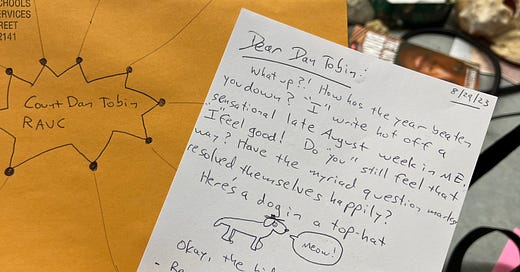 CHOOLS
ERVICES
REET
2141
Count Dan Tobin
RAVC
Dear Dan Tobin:
8/29/23
What up?! How has the year beaten
you down? "I" write hot off a
sensational late August week in ME.
"I feel good! Do "you" still feel that
way? Have the myriad question marks
resolved themselves happily?
Here's a dog in a top-hat
Meow!
Okay, the